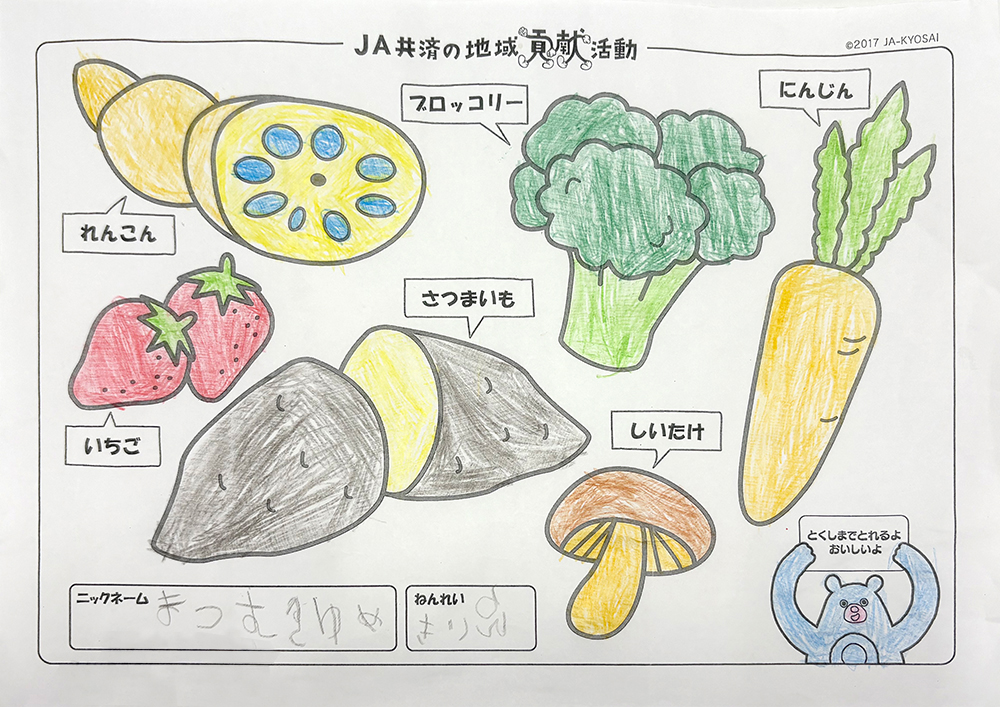 JA共済の地域貢献活動
©2017 JA-KYOSAI
ブロッコリー
にんじん
れんこん
さつまいも
いちご
しいたけ
とくしまでとれるよ
おいしいよ
ニックネーム
ねんれい